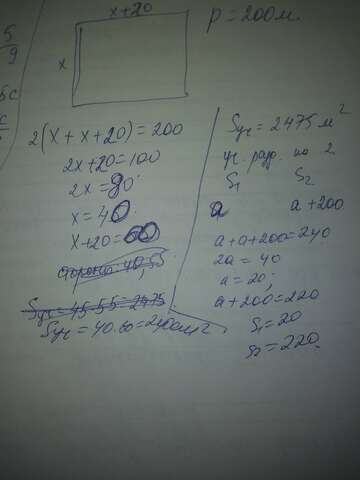 5
9
x+20
P=200м.
x
2(x+x+20)=200
2x+20=100
2x=80
x=40
x+20=60
стороны: 40,55
Sуч=45·55=2475
Sуч=40·60=2400м²
Sуч=2475м²
уч. разр. на 2
S₁ S₂
a a+200
a+a+200=240
2a=40
a=20;
a+200=220
S₁=20
S₂=220.